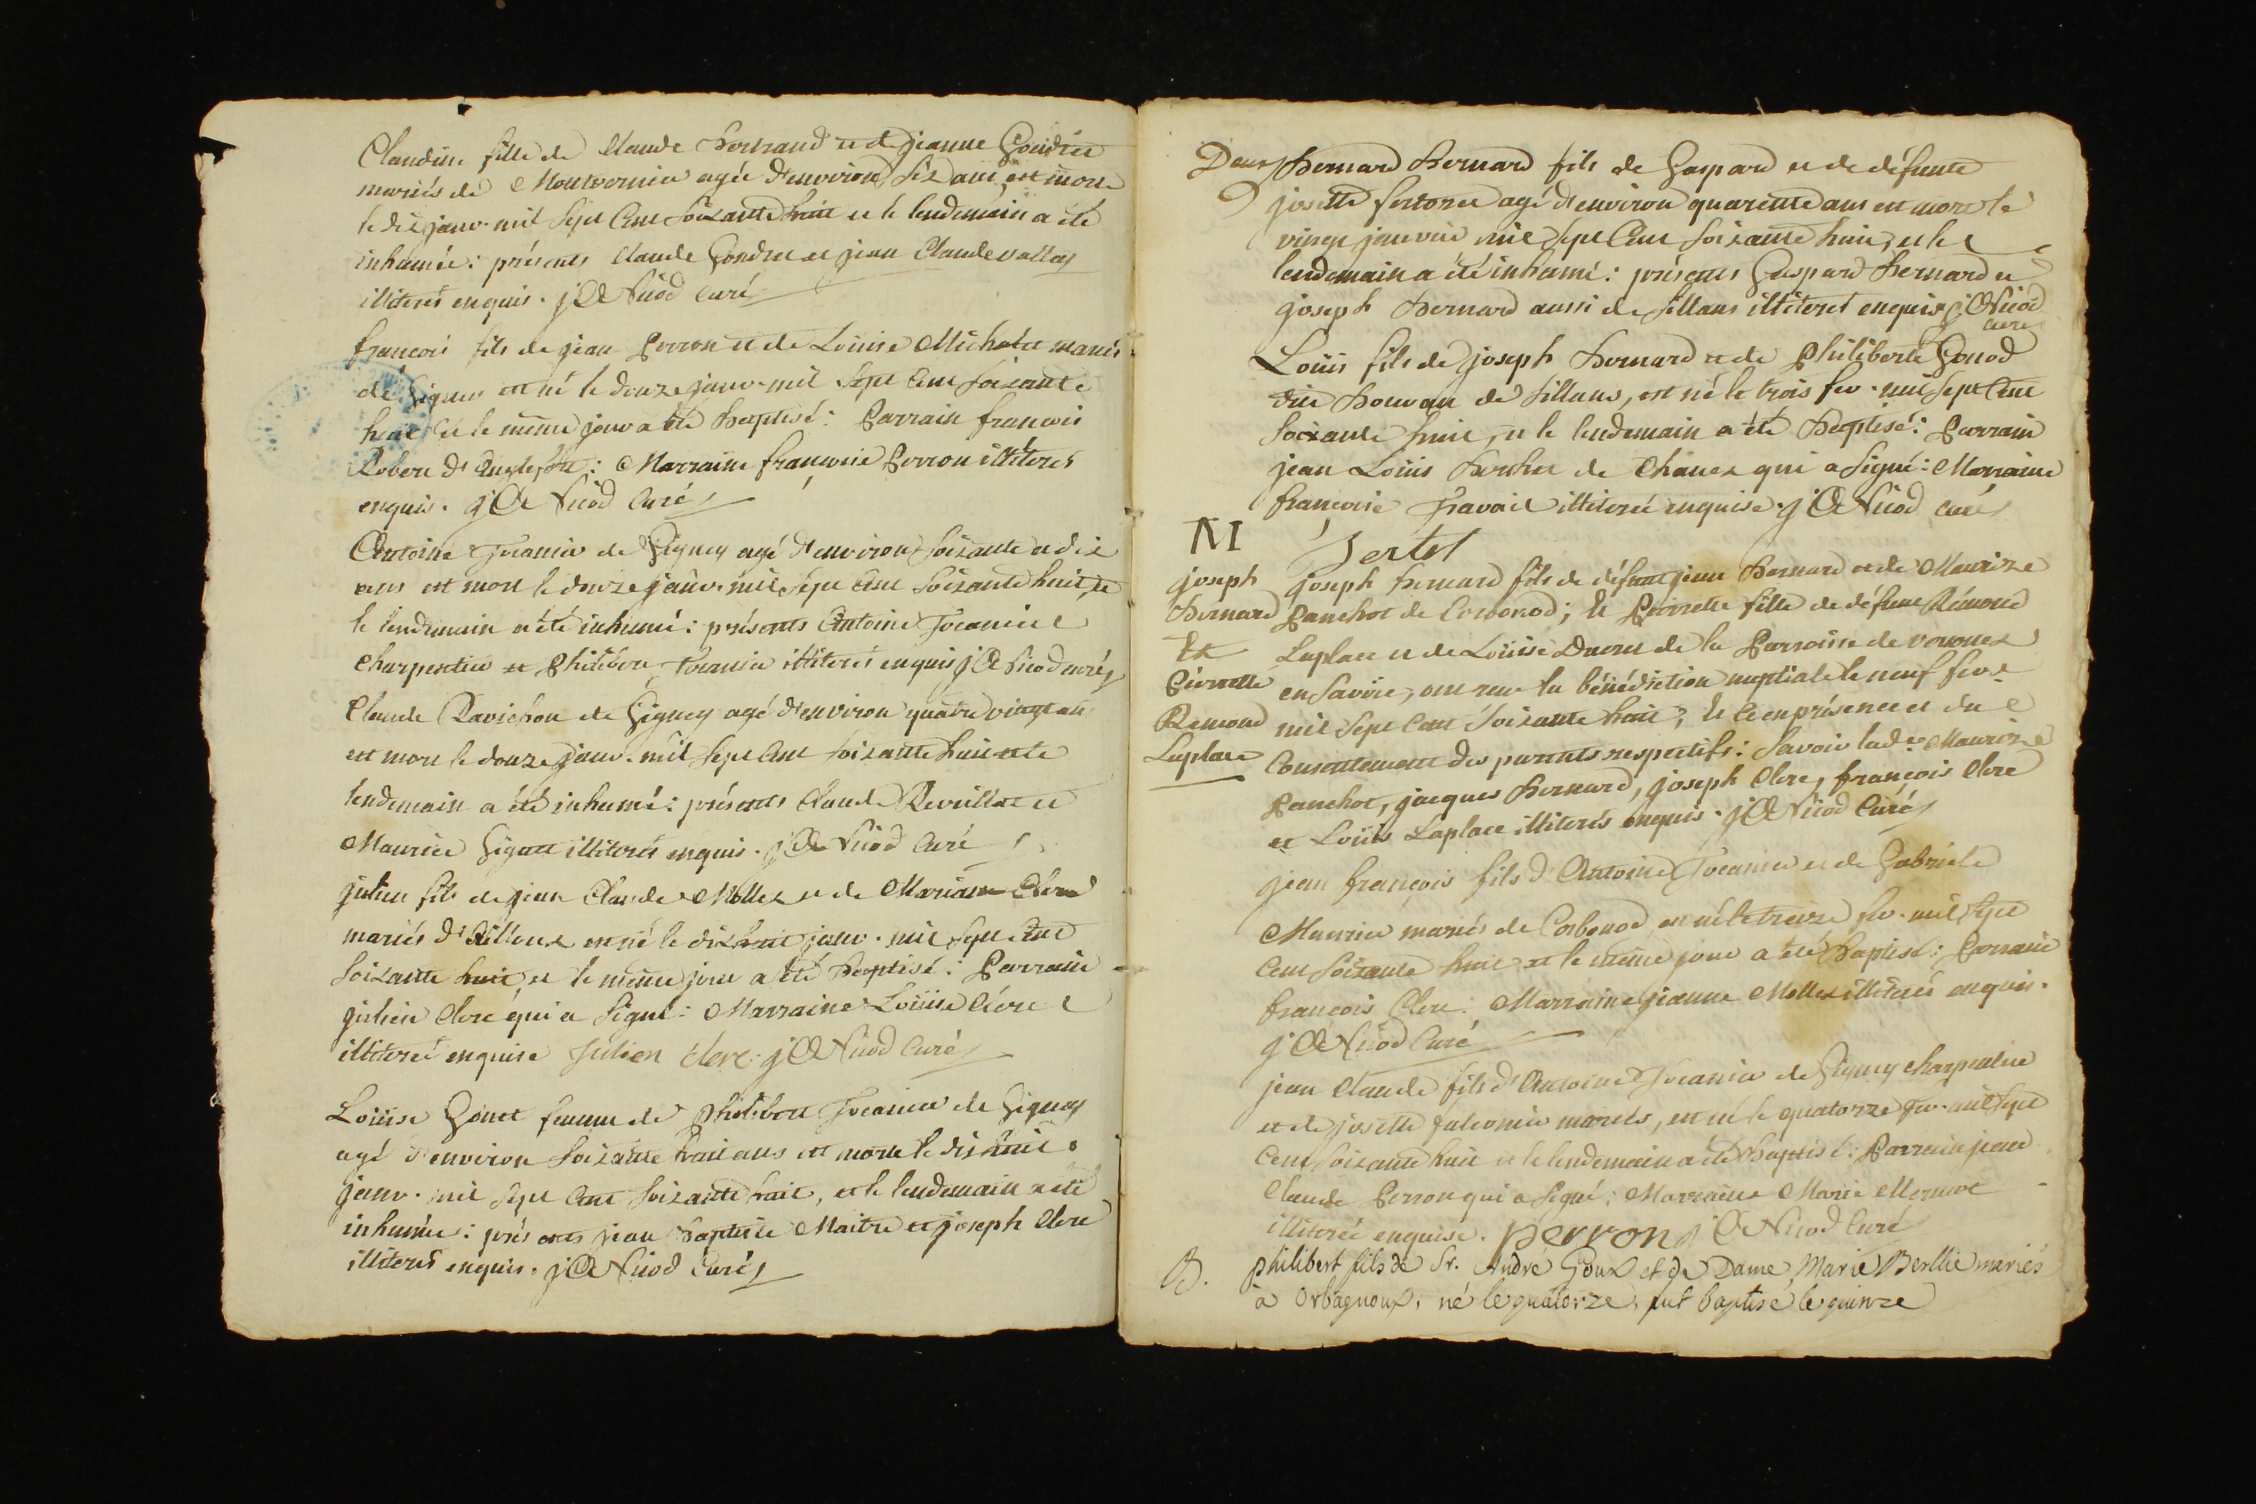 Claudine fille de Claude Bertrand et de jeanne Goudret
mariés de agée d'environ six ans est morte
le dix janv. mil sept cent soixante huit et le lendemain a été
inhumée: présents Claude Goudret et jean Claude vallas
illiterés enquis. j Nicod curé
françois fils de jean Perron et de Loüise Michalet mariés
de Gignez est né le douze janv. mil sept cent soixante
huit et le même jour a été baptisé: Parrain françois
Robert d'Anglefort: Marraine françoise Perron illiterés
enquis. j Nicod curé
Antoine Tocanier de Gignez agé d'environ soixante et dix
ans est mort le douze janv. mil sept cent soixante huit et
le lendemain a été inhumé: présents Antoine Tocanier
charpentier et Philibert Tocanier illiterés enquis j Nicod curé
Claude Ravichon de Gignez agé d'environ quatre vingt ans
est mort le douze janv. mil sept cent soixante huit et le
lendemain a été inhumé: présents Claude et
Maurice illiterés enquis. j Nicod curé
julien fils de jean Claude Mollex et de Mariane Clerc
mariés d' est né le dix huit janv. mil sept cent
soixante huit, et le même jour a été baptisé: Parrain
julien Clerc qui a signé: Marraine Loüise Clerc
illiterée enquise julien clerc. j Nicod curé
Loüise Gonet femme de Philibert Tocanier de Gignez
agé d'environ soixante huit ans est morte le dix huit
janv. mil sept cent soixante huit, et le lendemain a été
inhumée: présents jean Baptiste Maitre et joseph Clerc
illiterés enquis. j Nicod curé
Bernard Bernard fils de Gaspard et de défunte
josette agé d'environ quarante ans est mort le
vingt janvier mil sept cent soixante huit, et le
lendemain a été inhumé: présents Gaspard Bernard et
joseph Bernard aussi de Sillans illiterés enquis j Nicod
curé
Loüis fils de joseph Bernard et de Philiberte Gonod
dit de Sillans, est né le trois fev. mil sept cent
soixante huit, et le lendemain a été baptisé: Parrain
jean Loüis de Chanex qui a signé: Marraine
françoise Travail illiterée enquise. j Nicod curé
M
joseph
Bernard
Et
Pierrette
Remond
Laplace
joseph Bernard fils de défunt jean Bernard et de Maurize
Panchot de Corbonod; et Pierrette fille de défunt Rémond
Laplace et de Loüise de la Parroisse de
en Savoie, ont reçu la bénédiction nuptiale le neuf fev.
mil sept cent soixante huit, et ce en présence et du
consentement des parents respectifs: savoir lad.e Maurize
Panchot, jacques Bernard, joseph Clerc, françois Clerc
et Loüis Laplace illiterés enquis. j Nicod curé
jean françois fils d'Antoine Tocanier et de Gabriele
Maurier mariés de Corbonod est né le treize fev. mil sept
cent soixante huit et le même jour a été baptisé: Parrain
françois Clerc: Marraine jeanne Mollex illiterés enquis.
j Nicod curé
jean Claude fils d'Antoine Tocanier de Gignez charpentier
et de josette falconnier mariés, est né le quatorze fev. mil sept
cent soixante huit et le lendemain a été baptisé: Parrain jean
Claude Perron qui a signé: Marraine Marie Mermet
illiterée enquise. perron j Nicod curé
B. philibert fils de Sr. André Goux et de Dame Marie Berllie mariés
à Orbagnoux, né le quatorze, fut baptisé le quinze